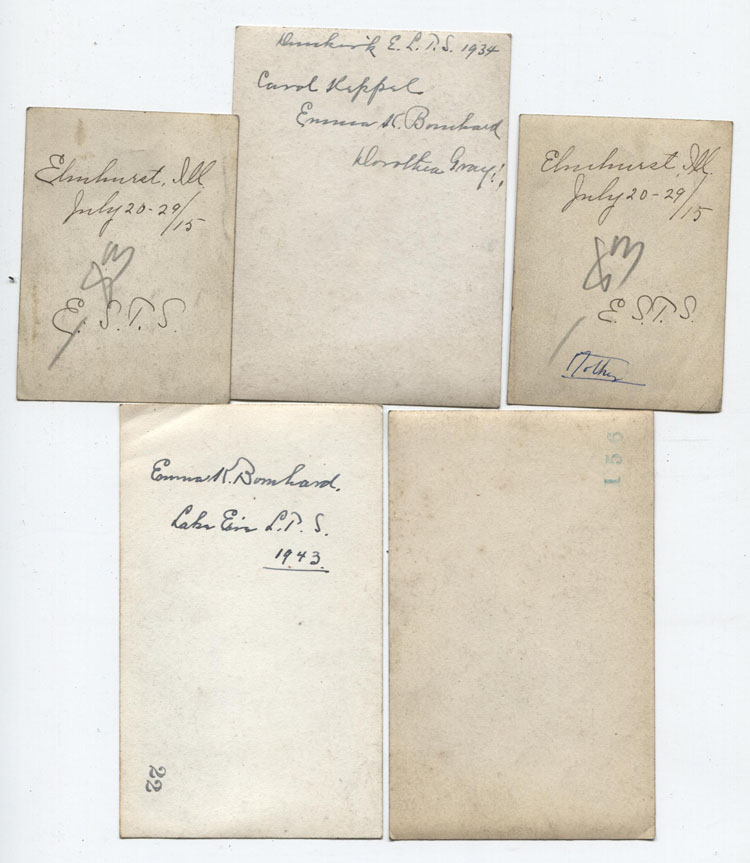 Dunkirk E. L. T. S. 1934
Carol Keppel
Emma K. Bomhard
Dorothea Gray!,
Elmhurst, Ill.
July 20-29/15
E. S. T. S.
Elmhurst, Ill.
July 20-29/15
E. S. T. S.
Mother
Emma K. Bomhard.
Lake Erie L. T. S.
1943.
22
156